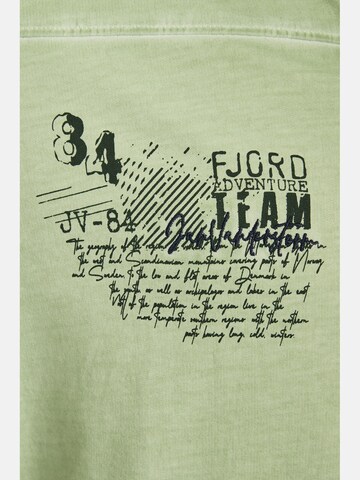 84
FJORD
ADVENTURE
TEAM
JV-84
Jan Vanderstorm
The geography of the region
the west and Scandinavian mountains covering parts of Norway
and Sweden to the low and flat areas of Denmark in
the south as well as archipelagos and lakes in the east
Most of the population in the region live in the
more temperate southern regions with the northern
parts having long, cold, winters.